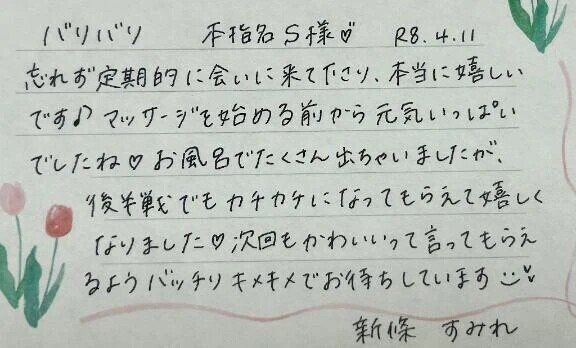 バリバリ 本指名 S様♡ R8.4.11
忘れず定期的に会いに来て下さり、本当に嬉しい
です♪ マッサージを始める前から元気いっぱい
でしたね♡ お風呂でたくさん出ちゃいましたが、
後半戦でもカチカチになってもらえて嬉しく
なりました♡ 次回もかわいいって言ってもらえ
るようバッチリキメキメでお待ちしています
新條 すみれ